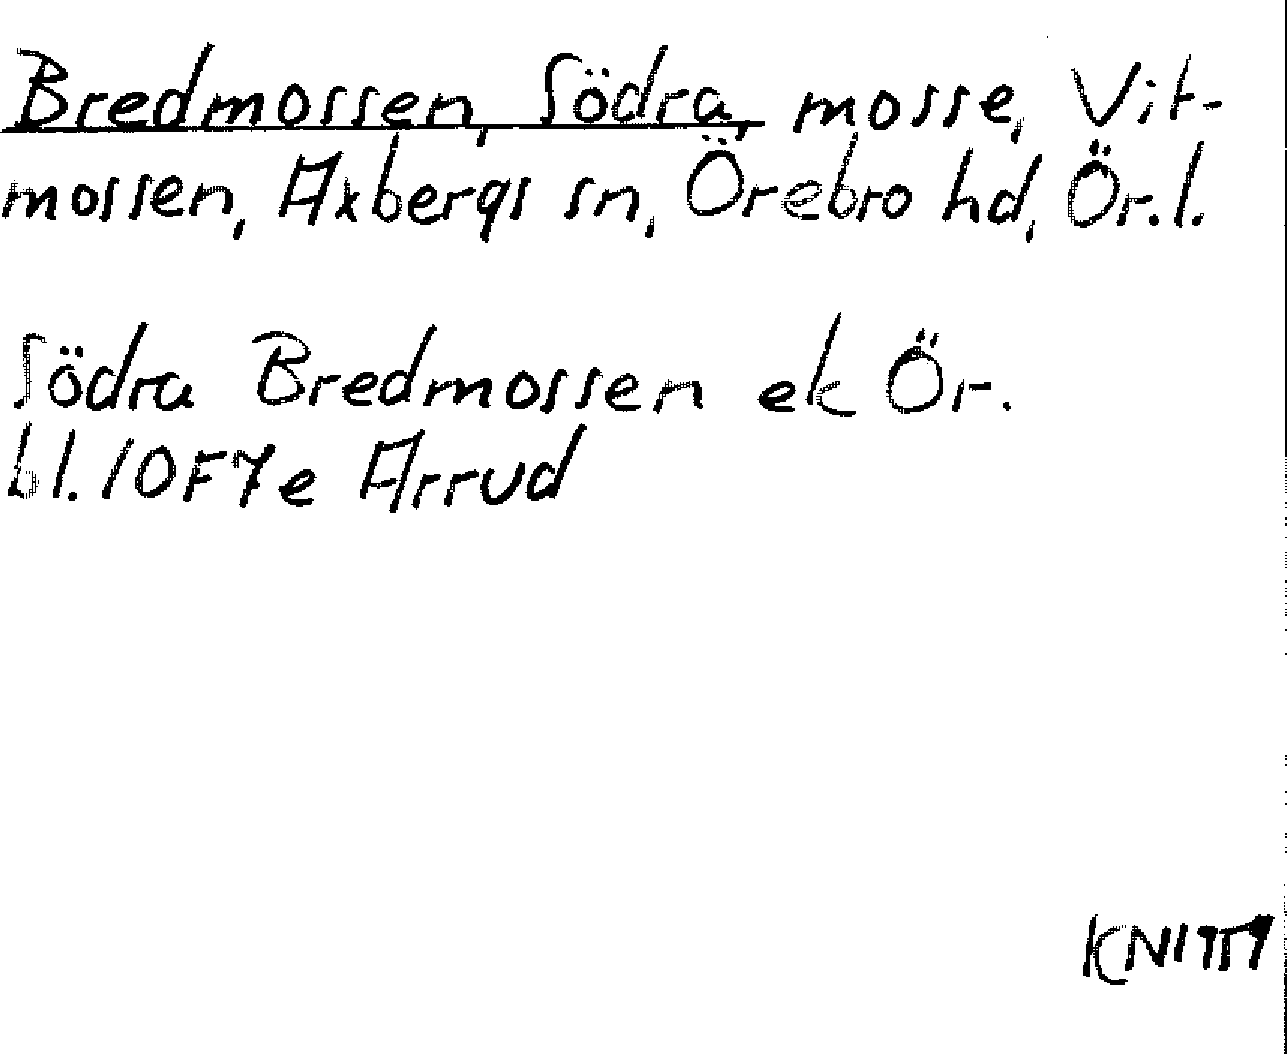 Bredmossen, Södra, mosse, Vit-
mossen, Axbergs sn, Örebro hd, Ör.l.
Södra Bredmossen ek Ör.
bl. 10F7e Arrud